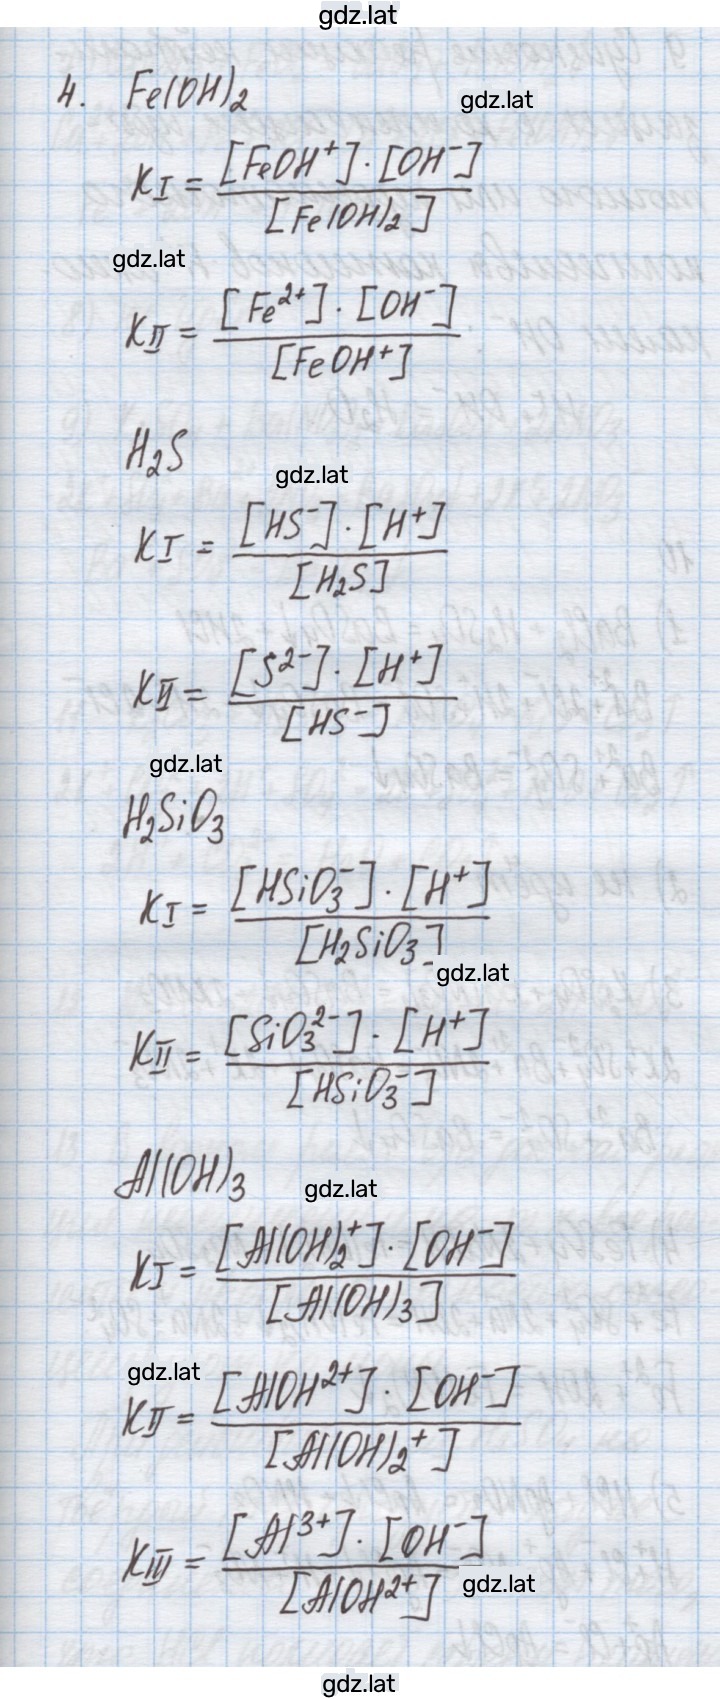 gdz.lat
4. Fe(OH)₂
gdz.lat
K_I = [FeOH⁺]·[OH⁻] / [Fe(OH)₂]
gdz.lat
K_II = [Fe²⁺]·[OH⁻] / [FeOH⁺]
H₂S
gdz.lat
K_I = [HS⁻]·[H⁺] / [H₂S]
K_II = [S²⁻]·[H⁺] / [HS⁻]
gdz.lat
H₂SiO₃
K_I = [HSiO₃⁻]·[H⁺] / [H₂SiO₃]
gdz.lat
K_II = [SiO₃²⁻]·[H⁺] / [HSiO₃⁻]
Al(OH)₃
gdz.lat
K_I = [Al(OH)₂⁺]·[OH⁻] / [Al(OH)₃]
gdz.lat
K_II = [AlOH²⁺]·[OH⁻] / [Al(OH)₂⁺]
K_III = [Al³⁺]·[OH⁻] / [AlOH²⁺]
gdz.lat
gdz.lat